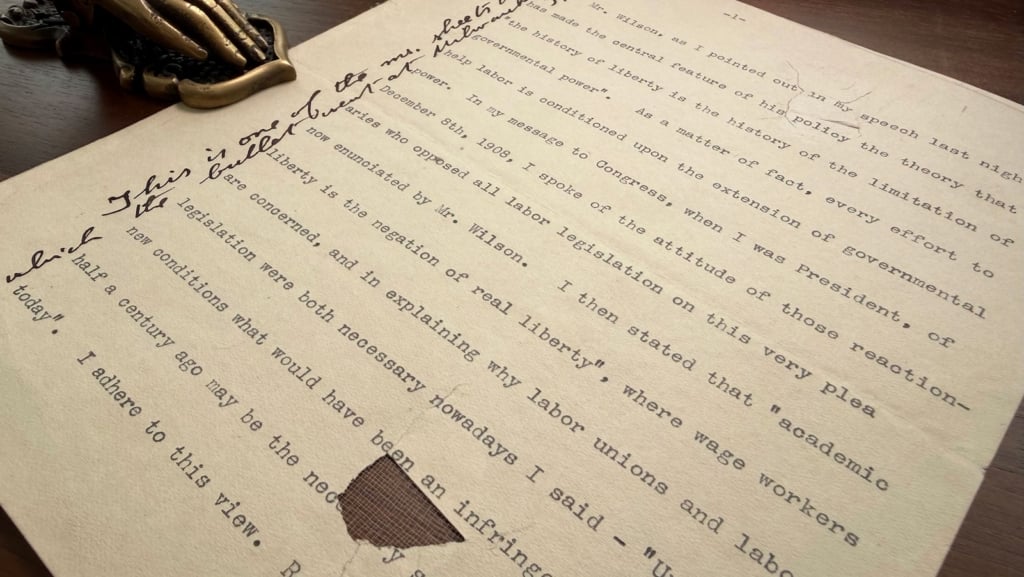 -1-
This is one of the ms. sheets
which the bullet went at
Mr. Wilson, as I pointed out in my speech last nigh
has made the central feature of his policy the theory that
"the history of liberty is the history of the limitation of
governmental power". As a matter of fact, every effort to
help labor is conditioned upon the extension of governmental
power. In my message to Congress, when I was President, of
December 8th, 1908, I spoke of the attitude of those reaction-
aries who opposed all labor legislation on this very plea
now enunciated by Mr. Wilson. I then stated that "academic
liberty is the negation of real liberty", where wage workers
are concerned, and in explaining why labor unions and labo
legislation were both necessary nowadays I said - "U
new conditions what would have been an infringe
half a century ago may be the nec y s
today". I adhere to this view.